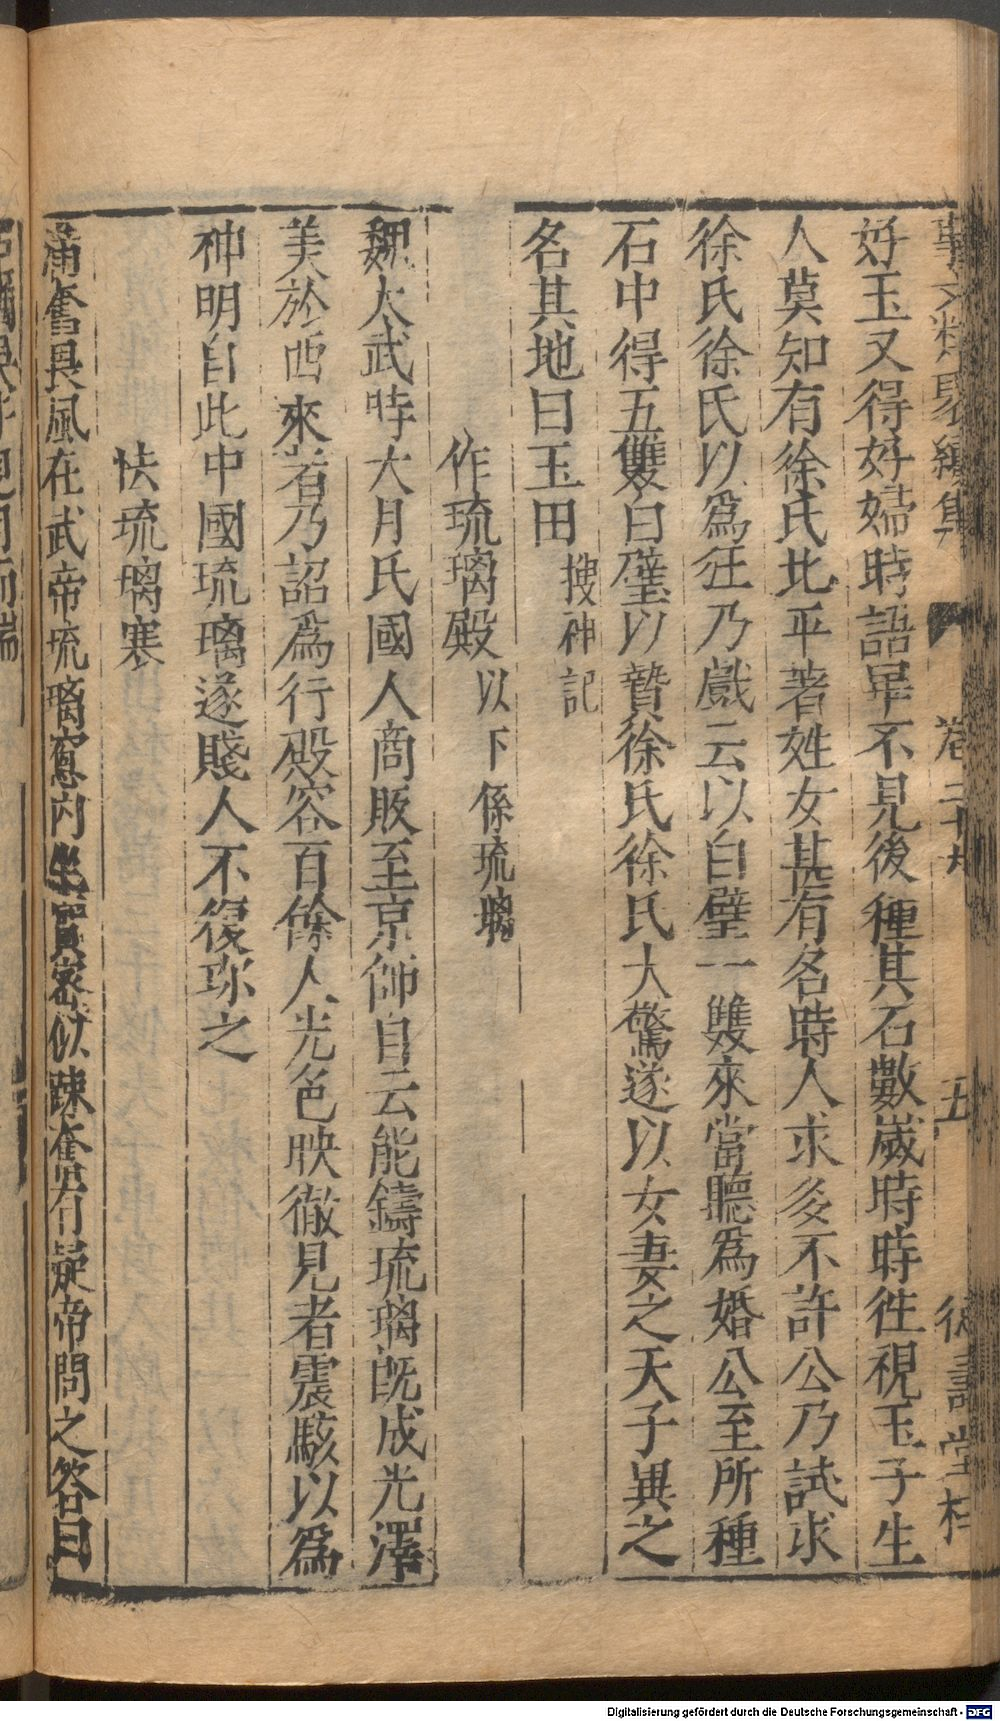 事文類聚續集 卷二十九 五 德壽堂梓
好玉又得好婦時語畢不見後種其石數歲時時徃視玉子生
人莫知有徐氏北平著姓女甚有名時人求多不許公乃試求
徐氏徐氏以爲狂乃戲云以白璧一雙來當聽爲婚公至所種
石中得五雙白璧以贄徐氏徐氏大驚遂以女妻之天子異之
名其地曰玉田 搜神記
作琉璃殿 以下係琉璃
魏太武時大月氏國人商販至京師自云能鑄琉璃既成光澤
美於西來者乃詔爲行殿容百餘人光色映徹見者震駭以爲
神明自此中國琉璃遂賤人不復珎之
怯琉璃寒
滿奮畏風在武帝琉璃窻內坐實宻似踈奮有疑帝問之答曰
Digitalisierung gefördert durch die Deutsche Forschungsgemeinschaft - DFG